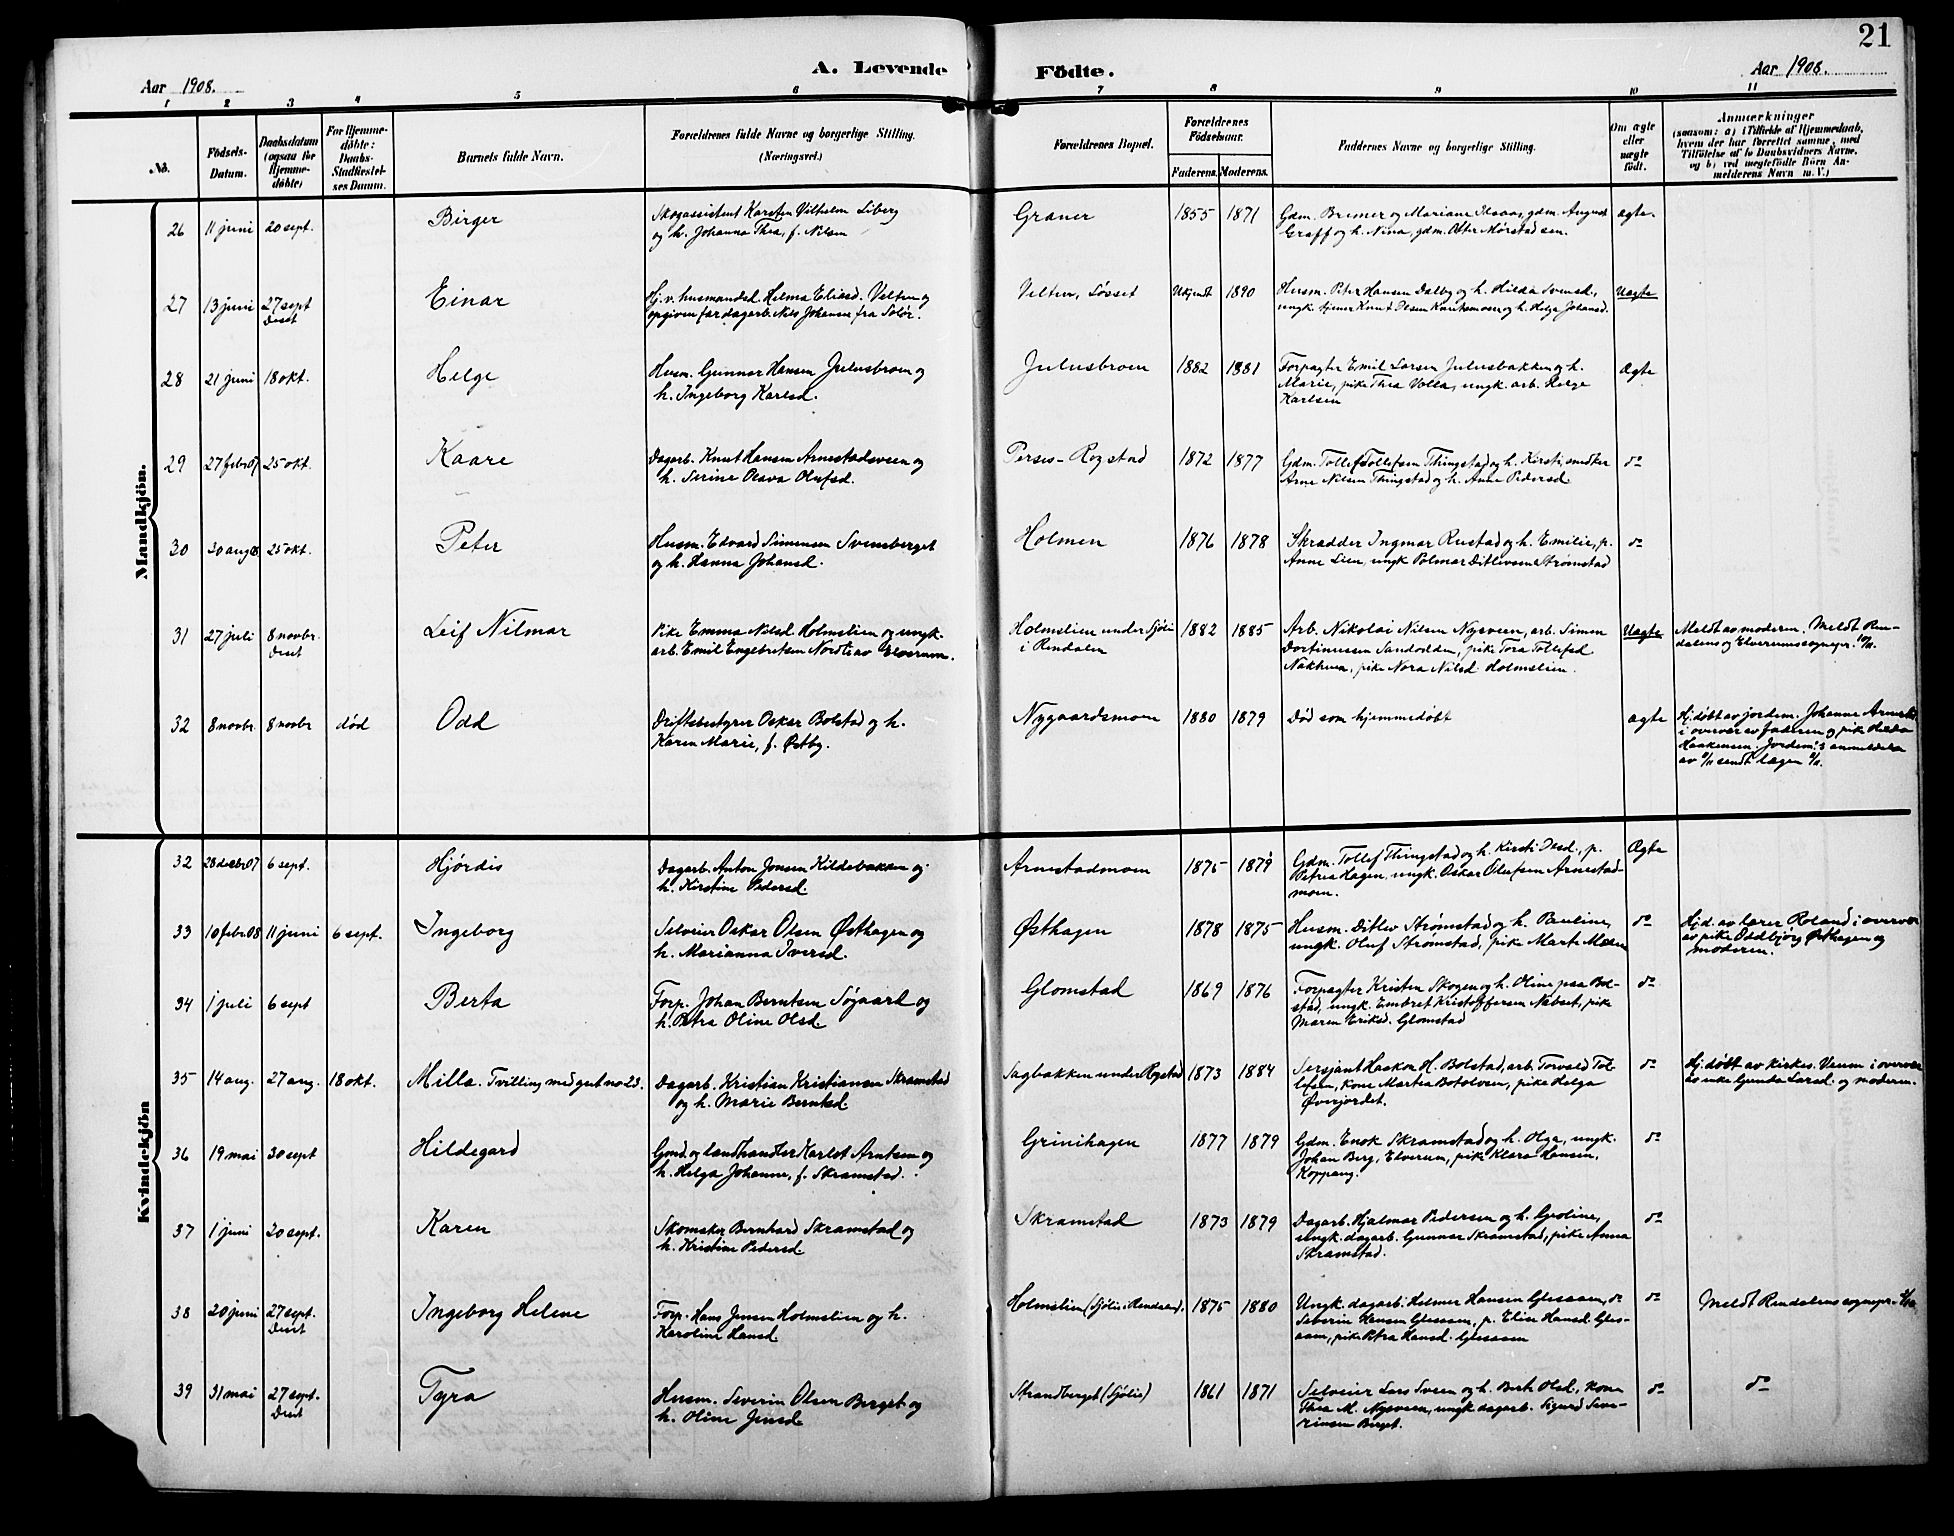 21
Aar 1908.
A. Levende Fødte.
Aar 1908.
1 2 3 4 5 6 7 8 9 10 11
No.
Födsels-Datum.
Daabsdatum (ogsaa for Hjemme-døbte)
For Hjemme-døbte: Daabs-Stadfæstel-ses Datum.
Barnets fulde Navn.
Forældrenes fulde Navne og borgerlige Stilling. (Næringsvei.)
Forældrenes Bopæl.
Forældrenes Födselsaar.
Faderens. Moderens.
Faddernes Navne og borgerlige Stilling.
Om ægte eller uægte født.
Anmærkninger
(saasom: a) i Tilfælde af Hjemmedaab, hvem der har forrettet samme, med Tilföielse af to Daabsvidners Navne, og b) ved uægtefödte Börn An-melderens Navn m. V.)
Mandkjön.
26 11 juni 20 sept. Birger
Skogassistent Karsten Vilhelm Liberg
og h. Johanna Thea, f. Nilsen
Graner 1855 1871
Gdm. Bremer og Mariane gdm. August
Graff og h. Nina, gdm. Otter Mørstad sen.
ægte.
27 13 juni 27 sept Deset Einar
Hj. v. husmandsd. Helma Eliasd. Velten og
opgiven far dagarb. Nils Johansen fra Solør.
Velten, Løsset Ukjendt 1890
Husm. Peter Hansen Dalby og h. Hilda Svensd.,
ungk. tjener Knut Olsen og h. Helga Johansd.
Uægte
28 21 juni 18 okt. Helge
Husm. Gunnar Hansen Julusbroen og
h. Ingeborg Karlsd.
Julusbroen 1882 1881
Forpagter Emil Larsen Julusbakken og h.
Marie, pike Thea Volla, ungk. arb. Helge
Karlsen
Ægte
29 27 febr 07 25 okt. Kaare
Dagarb. Knut Hansen Arnestadsveen og
h. Serine Olava Olufsd.
Perses-Rogstad 1872 1877
Gdm. Tollef Tollefsen Thingstad og h. Kirsti, snekker
Arne Nilsen Thingstad og h. Anne Pedersd
do
30 30 aug 08 25 okt. Peter
Husm. Edvard Simensen Svensberget
og h. Hanna Johansd.
Holmen 1876 1878
Skrædder Ingmar Rustad og h. Emilie, p.
Anne Lien, ungk Polmar Ditlevsen Strømstad
do
31 27 juli 8 novbr. Deset Leif Nilmar
Pike Emma Nilsd. Holmslien og ungk.
arb. Emil Engebretsen Nordli av Elverum.
Holmslien under Sjöli
i Rendalen 1882 1885
Arb. Nikolai Nilsen Nysveen, arb. Simen
Dortinussen Sandodden, pike Tora Tollefsd
Nakhuen, pike Nora Nilsd Holmslien.
Uægte
Meldt av moderen. Meldt Ren-
dalens og Elverums sognepr.
32 8 novbr. 8 novbr død Odd
Driftsbestyrer Oskar Bolstad og h.
Karen Marie, f. Østby.
Nygaardsmoen 1880 1879
Død som hjemmedøbt
ægte
Hj. døbt av jordem. Johanne Arnestad
i overvær av faderen og pike Hilda
Haakensen. Jordem.'s anmeldelse
av 8/11 sendt lægen
Kvindekjön
32 28 decbr. 07 6 sept. Hjørdis
Dagarb. Anton Jonsen Kildebakken og
h. Kirstine Pedersd.
Arnestadmoen 1875 1879
Gdm. Tollef Thingstad og h. Kirsti p.
Petrea Hagen, ungk. Oskar Olufsen Arnestad-
moen.
Ægte
33 10 febr. 08 11 juni 6 sept. Ingeborg
Selveier Oskar Olsen Østhagen og
h. Marianna Iversd.
Østhagen 1878 1875
Husm. Ditlev Strømstad og h. Pauline,
ungk. Oluf Strømstad, pike Marte Moen
do
Hj.d. av lærer Roland i overvær
av pike Oddbjörg Østhagen og
moderen.
34 1 juli 6 sept Berta
Forp. Johan Berntsen Søgaard og
h. Petra Oline Olsd.
Glomstad 1869 1876
Forpagter Kristen Skogen og h. Oline paa Bol-
stad, ungk. Embret Kristoffersen Nabset, pike
Maren Eriksd. Glomstad
do
35 14 aug. 27 aug. 18 okt. Milla. Tvilling med gut no 23.
Dagarb. Kristian Kristiansen Skramstad
og h. Marie Berntsd.
Sagbakken under Rogstad 1873 1884
Sersjant Haakon H. Bolstad, arb. Torvald Tol-
lefsen, kone Martea Botolven, pike Helga
Øverjordet.
do
Hj. døbt av kirkes. Verum i overvær
av enke Gunda Larsd. og moderen.
36 19 mai 30 sept Hildegard
Gmd. og landhandler Karlot Arntsen og
h. Helga Johanne, f. Skramstad.
Grinihagen 1877 1879
Gdm. Enok Skramstad og h. Olga, ungk.
Johan Berg, Elverum, pike Klara Hansen,
Koppang.
do
37 1 juni 20 sept. Karen
Skomaker Bernhard Skramstad og
h. Kristine Pedersd.
Skramstad 1873 1879
Dagarb. Hjalmar Pedersen og h. Gvoline,
ungk. dagarb. Gunnar Skramstad, pike Anna
Skramstad.
do
38 20 juni 27 sept. Deset Ingeborg Helene
Forp. Hans Jensen Holmslien og h.
Karoline Hansd.
Holmslien (Sjöli i Rendalen). 1875 1880
Ungk. dagarb. Helmer Hansen Glesaaen, do
Severin Hansen Glesaaen, p. Elise Hansd. Gles-
aaen, pike Petra Hansd. Glesaaen
do
Meldt Rendalens sognepr.
39 31 mai 27 sept. Deset Tyra
Husm. Severin Olsen Berget og
h. Oline Jensd.
Strandberget (Sjölis) 1861 1871
Selveier Lars Sveen og h. Berte Olsd., kone
Thea M. Nysveen, ungk dagarb. Sigurd Seve-
rinsen Berget.
do
do